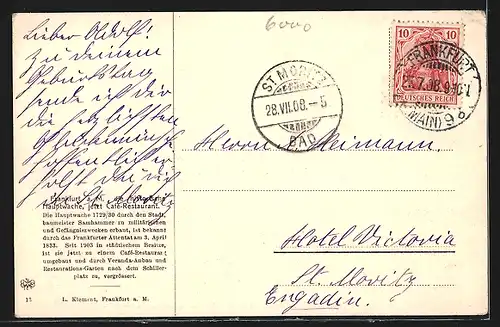 6000
Lieber Adolf!
Zu deinem
Geburtstag
sende ich dir
die herzlichsten
hoffentlich
ST. MORITZ
28.VII.08. – 5
BAD
10 10
DEUTSCHES REICH
FRANKFURT
(MAIN) 9
Herrn Heimann.
Hotel Victoria
St. Moritz
Engadin.
Frankfurt a. M.
Hauptwache, jetzt Café-Restaurant.
Die Hauptwache 1729/30 durch den Stadt-
baumeister Samhammer zu militärischen
und Gefängniszwecken erbaut, ist bekannt
durch das Frankfurter Attentat am 3. April
1833. Seit 1903 in städtischem Besitze,
ist sie jetzt zu einem Café-Restaurant
umgebaut und durch Veranda-Anbau und
Restaurations-Garten nach dem Schiller-
platz zu, vergrössert.
L. Klement, Frankfurt a. M.